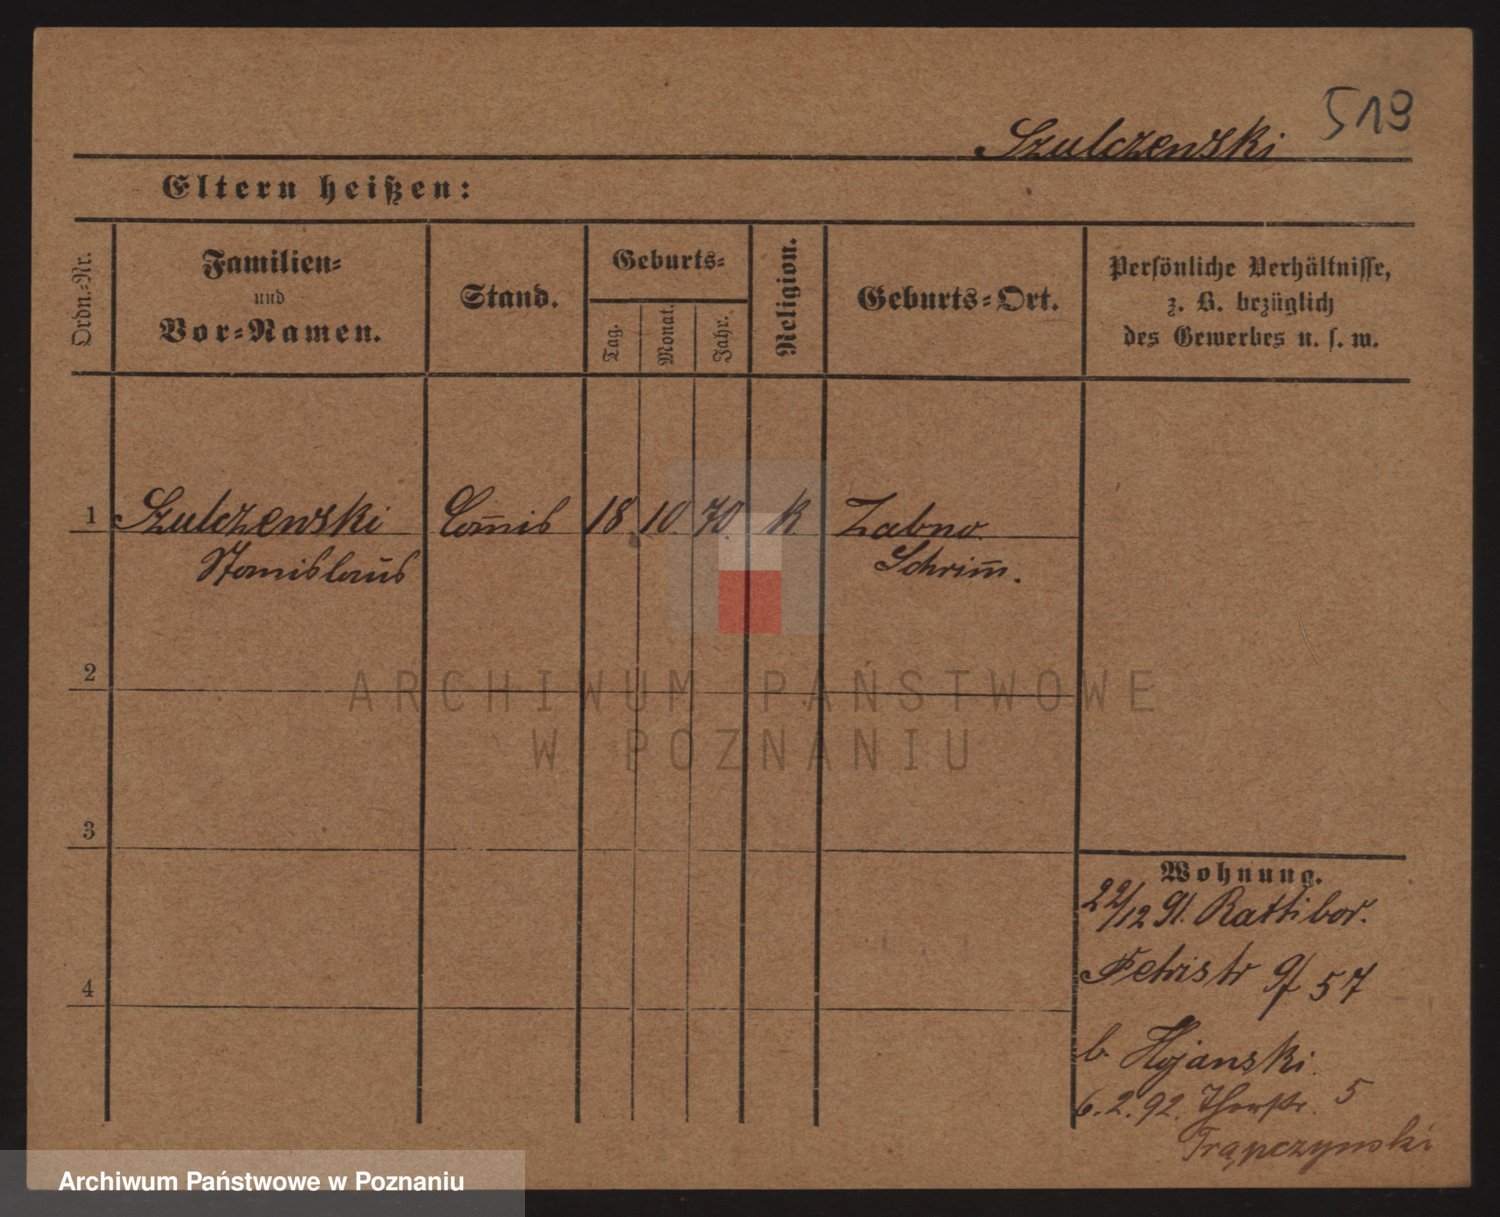 519
Szulczewski
Eltern heißen:
Ordn.-Nr.
Familien-
und
Vor-Namen.
Stand.
Geburts-
Tag.
Monat.
Jahr.
Religion.
Geburts-Ort.
Persönliche Verhältnisse,
z. B. bezüglich
des Gewerbes u. s. w.
1 Szulczewski Com̅is 18. 10. 70. k. Zabno
Stanislaus Schrim̅.
2
ARCHIWUM PAŃSTWOWE
W POZNANIU
3
Wohnung.
22/12 91. Rattibor.
Petristr 9/ 57
b. Hojanski.
6.2.92. 5
Trąpczynski
4
Archiwum Państwowe w Poznaniu